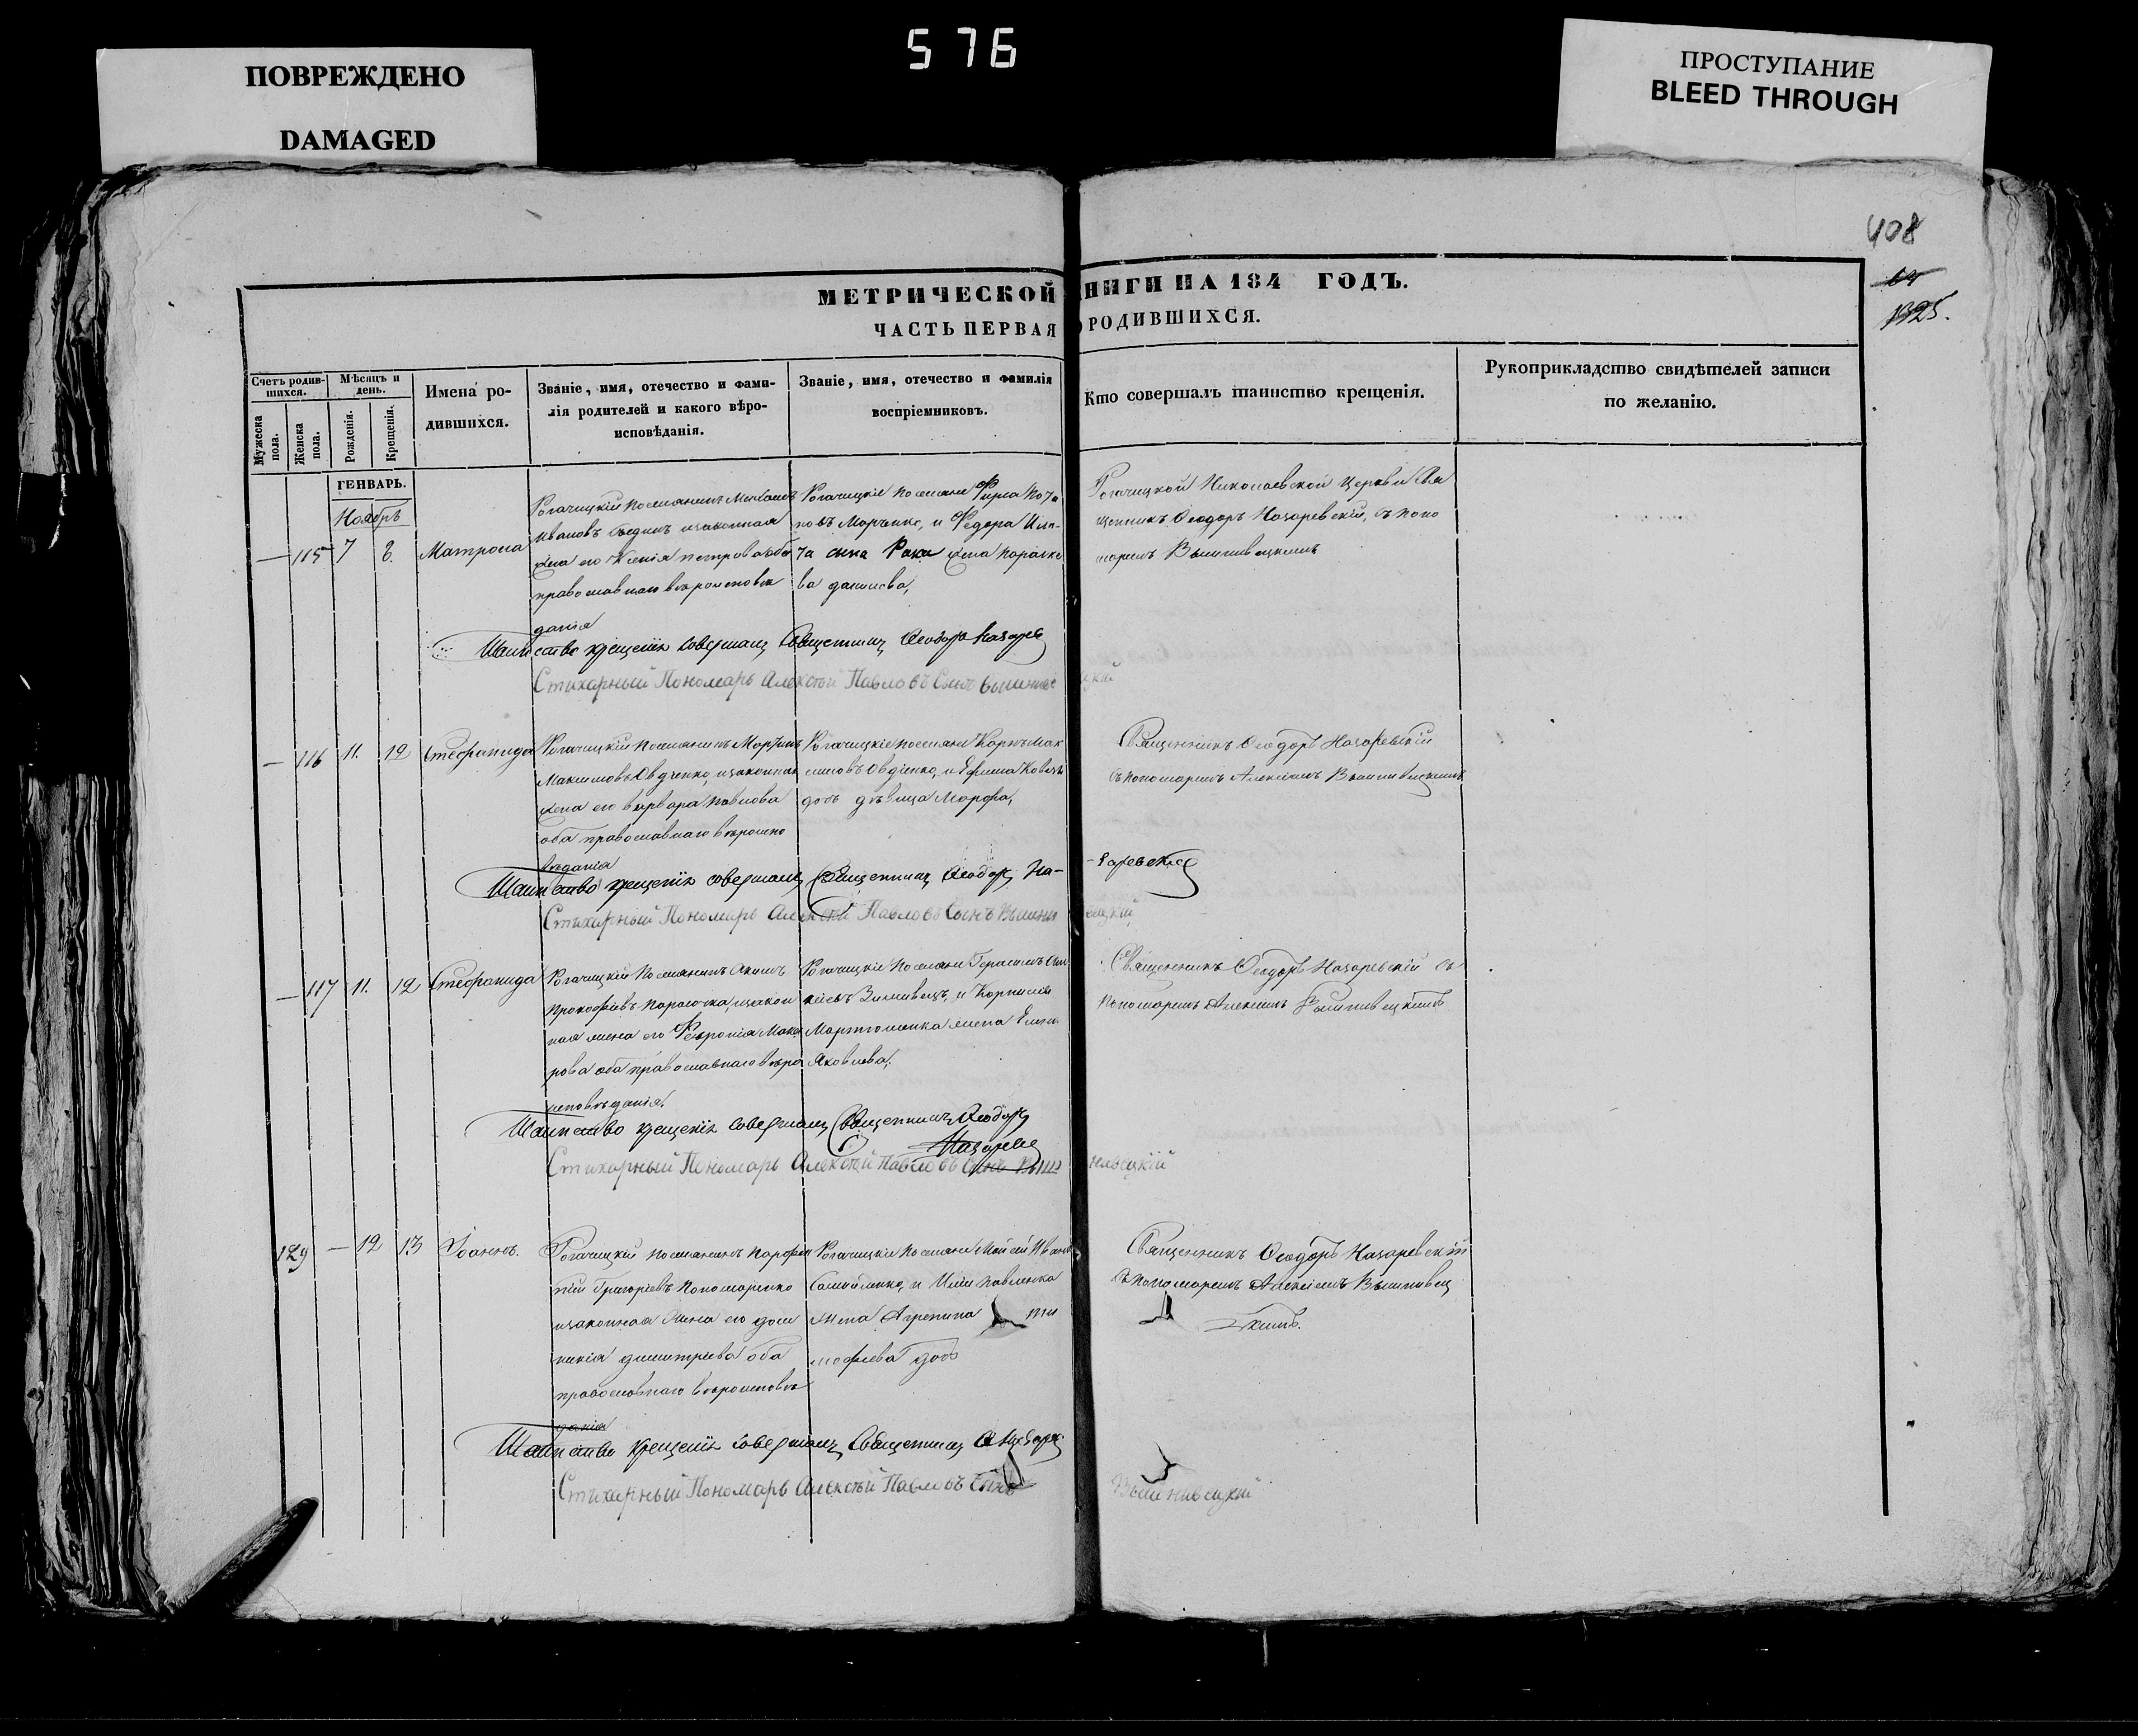 576
ПОВРЕЖДЕНО
DAMAGED
ПРОСТУПАНИЕ
BLEED THROUGH
408
1325.
МЕТРИЧЕСКОЙ КНИГИ НА 184 ГОДЪ.
ЧАСТЬ ПЕРВАЯ О РОДИВШИХСЯ.
Счетъ родив-
шихся.
Мужеска
пола.
Женска
пола.
Мѣсяцъ и
день.
Рожденія.
Крещенія.
Имена ро-
дившихся.
Званіе, имя, отечество и фами-
лія родителей и какого вѣро-
исповѣданія.
Званіе, имя, отечество и фамилія
воспріемниковъ.
Кто совершалъ таинство крещенія.
Рукоприкладство свидѣтелей записи
по желанію.
ГЕНВАРЬ.
Ноябрь
— 115 7 8. Матрона
Рогачицкій поселянинъ
Ивановъ изаконная
жена его Ксенія Петрова оба
православнаго вѣроисповѣ
данія
Рогачицкіе поселяне
новъ Марченко, и Федора Иль-
жена Параске
ва
Рогачицкой Николаевской Церкви Свя
щенникъ Феодоръ Назаревскій, съ поно
маремъ Вышнивецкимъ
Таинство крещенія совершалъ Священникъ Феодоръ Назарев
Стихарный Пономарь Алексѣй Павловъ Сынъ Вышнивецкій
— 116 11. 12 Стефанида
Рогачицкій поселянинъ Мартинъ
Максимовъ Овдченко, изаконная
жена его Варвара Павлова
оба православнаго вѣроиспо
вѣданія
Рогачицкіе поселяне Карпъ Мак
симовъ Овдіенко, и Ефима
дочь дѣвица Марфа,
Священникъ Феодоръ Назаревскій
съ пономаремъ Алексіемъ Вышнивецкимъ
Таинство крещенія совершалъ Священникъ Феодоръ На-
-заревскій
Стихарный Пономарь Алексѣй Павловъ Сынъ Вышнивецкій
— 117 11. 12 Стефанида
Рогачицкій поселянинъ Акимъ
Прокофіевъ изакон
ная жена его Февронія Мака
рова оба православнаго вѣро
исповѣданія.
Рогачицкіе поселяне Герасимъ
и Корнилія
жена
Яковлева.
Священникъ Феодоръ Назаревскій съ
пономаремъ Алексіемъ Вышнивецкимъ
Таинство крещенія совершалъ Священникъ Феодоръ
Назаревс
Стихарный Пономарь Алексѣй Павловъ Сынъ Вышнивецкій
129 — 12 13 Іоаннъ.
Рогачицкій поселянинъ Парфен
тій Григоріевъ Пономаренко
изаконная жена его Дом
никія Димитріева оба
православнаго вѣроисповѣ
данія
Рогачицкіе поселяне Мойсей Иванов
Самойленко, и Иліи Павленка
жена Агрепина Ти
мофіева дочь
Священникъ Феодоръ Назаревскій
съ пономаремъ Алексіемъ Вышнивец
кимъ.
Таинство крещенія совершалъ Священникъ Ф Назарев
Стихарный Пономарь Алексѣй Павловъ Сынъ Вышнивецкій